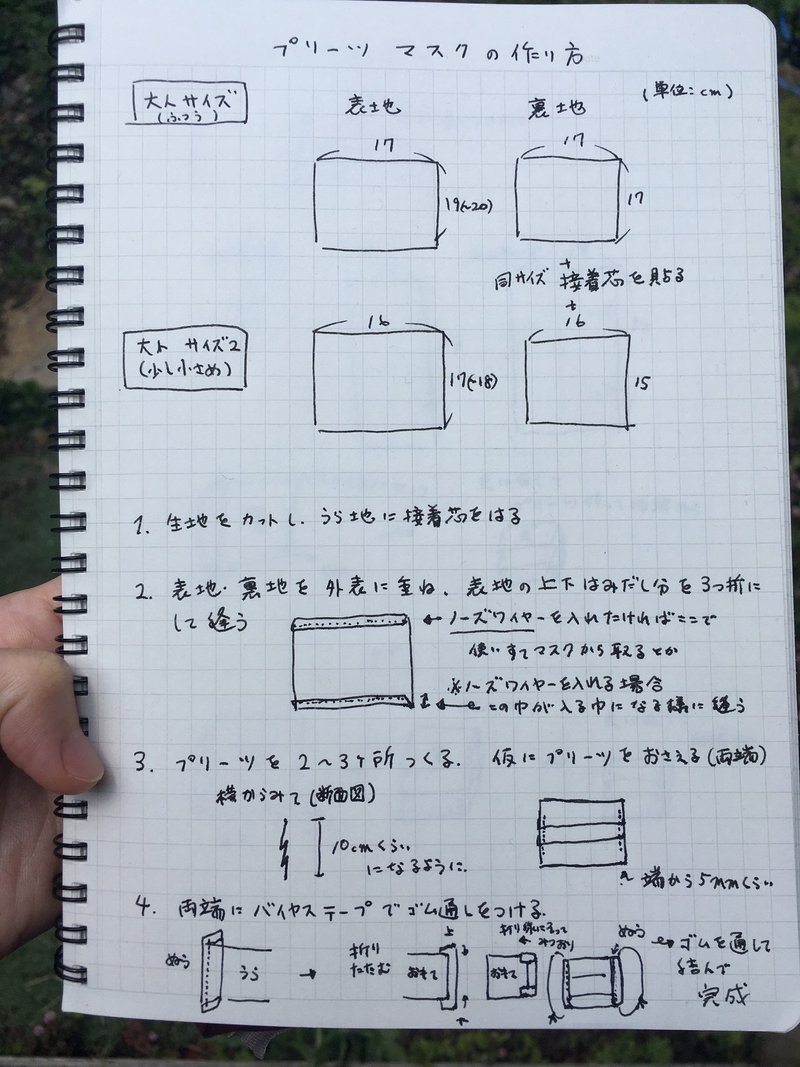 プリーツ マスクの作り方
大人サイズ
(ふつう)
表地
裏地
(単位:cm)
17
19(~20)
17
17
+
同サイズ 接着芯を貼る
+
大人 サイズ2
(少し小さめ)
16
17(~18)
16
15
1. 生地をカットし、うら地に接着芯をはる
2. 表地・裏地を外表に重ね、表地の上下はみだし分を3つ折に
して縫う
← ノーズワイヤーを入れたければここで
使いすてマスクから取るとか
※ノーズワイヤーを入れる場合
この巾が入る巾になる様に縫う
3. プリーツを2~3ヶ所つくる. 仮にプリーツをおさえる(両端)
横からみて(断面図)
10cmくらい
になるように.
端から5mmくらい
4. 両端にバイヤステープでゴム通しをつける.
ぬう
うら
→
折り
たたむ
上
おもて
下
折り線にそって
みつおり
おもて
ぬう
ゴムを通して
結んで
完成